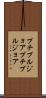 プチブルジ
ョアプチブ
ルジョア